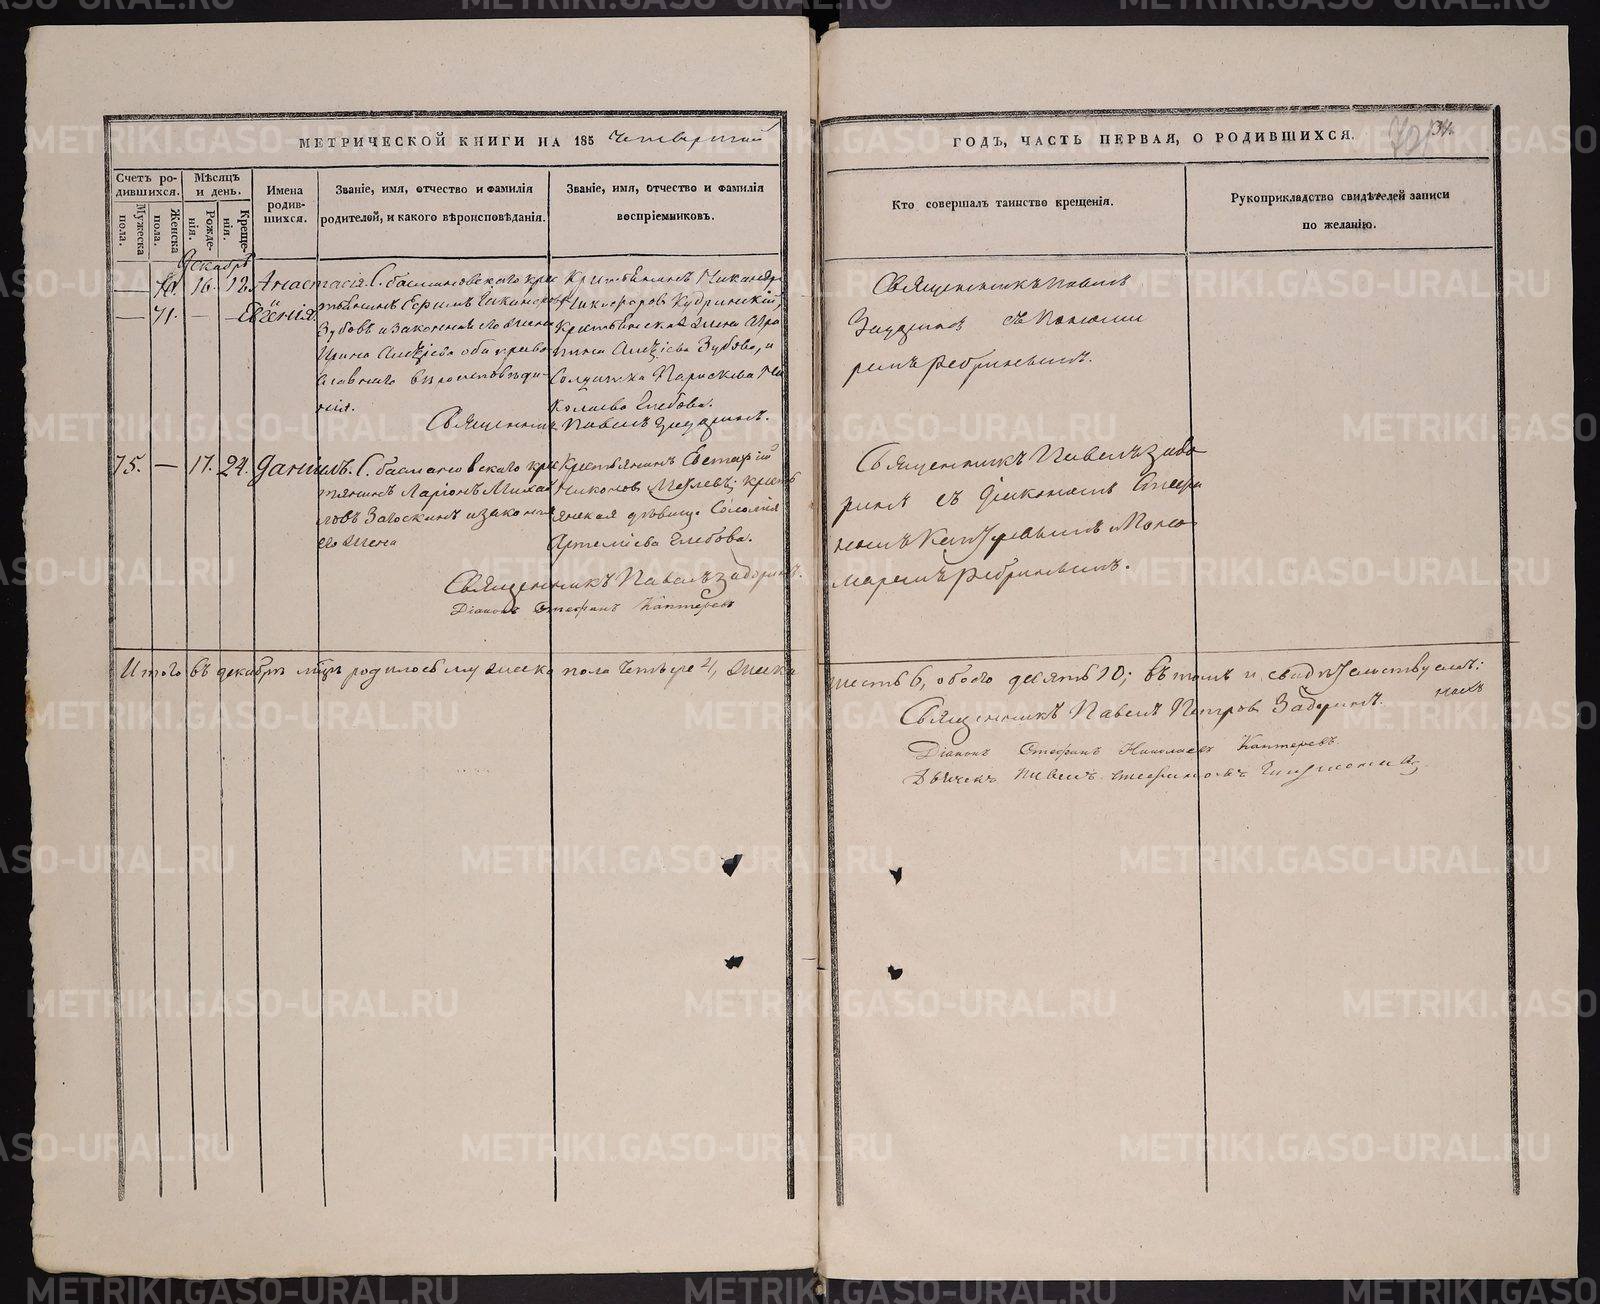 МЕТРИЧЕСКОЙ КНИГИ НА 185 четвертый
ГОДЪ, ЧАСТЬ ПЕРВАЯ, О РОДИВШИХСЯ.
Счетъ ро-
дившихся.
Мѣсяцъ
и день.
Мужеска
пола.
Женска
пола.
Рожде-
нія.
Креще-
нія.
Имена
родив-
шихся.
Званіе, имя, отчество и фамилія
родителей, и какого вѣроисповѣданія.
Званіе, имя, отчество и фамилія
воспріемниковъ.
Кто совершалъ таинство крещенія.
Рукоприкладство свидѣтелей записи
по желанію.
Декабрь
— 70. 16. 18. Анастасія.
— 71. — — Евгенія.
С. басмановскаго крес
тьянинъ Ефимъ Никаноровъ
Зубовъ и законная его жена
Ирина Алексіева оба право
славнаго вѣроисповѣда-
нія.
Крестьянинъ Никандръ
Никифоровъ Кудринскій,
Крестьянская жена
Алексіева Зубова, и
Солдатка Параскева Ни
колаева Глебова.
Священникъ Павелъ Задоринъ.
Священникъ Павелъ
Задоринъ съ Поно
маремъ
75. — 17. 24. Даніилъ.
С. басмановскаго крес
тянинъ Ларіонъ Михай
ловъ Загоскинъ и законная
его жена
Крестьянинъ
Никоновъ крест
янская дѣвица Соломія
Артеміева Глебова.
Священникъ Павелъ Задоринъ.
Діаконъ Стефанъ Каптеревъ
Священникъ Павелъ Задо
ринъ съ Діакономъ Стефа
номъ Каптеревымъ и Поно
маремъ
Итого въ декабрѣ мцѣ родилось мужеска пола четыре 4, женска
шесть 6, обоего десять 10; въ томъ и свидѣтельствуемъ:
Священникъ Павелъ Петровъ Задоринъ.
Діаконъ Стефанъ Николаевъ Каптеревъ.
Дьячекъ Павелъ
METRIKI.GASO-URAL.RU